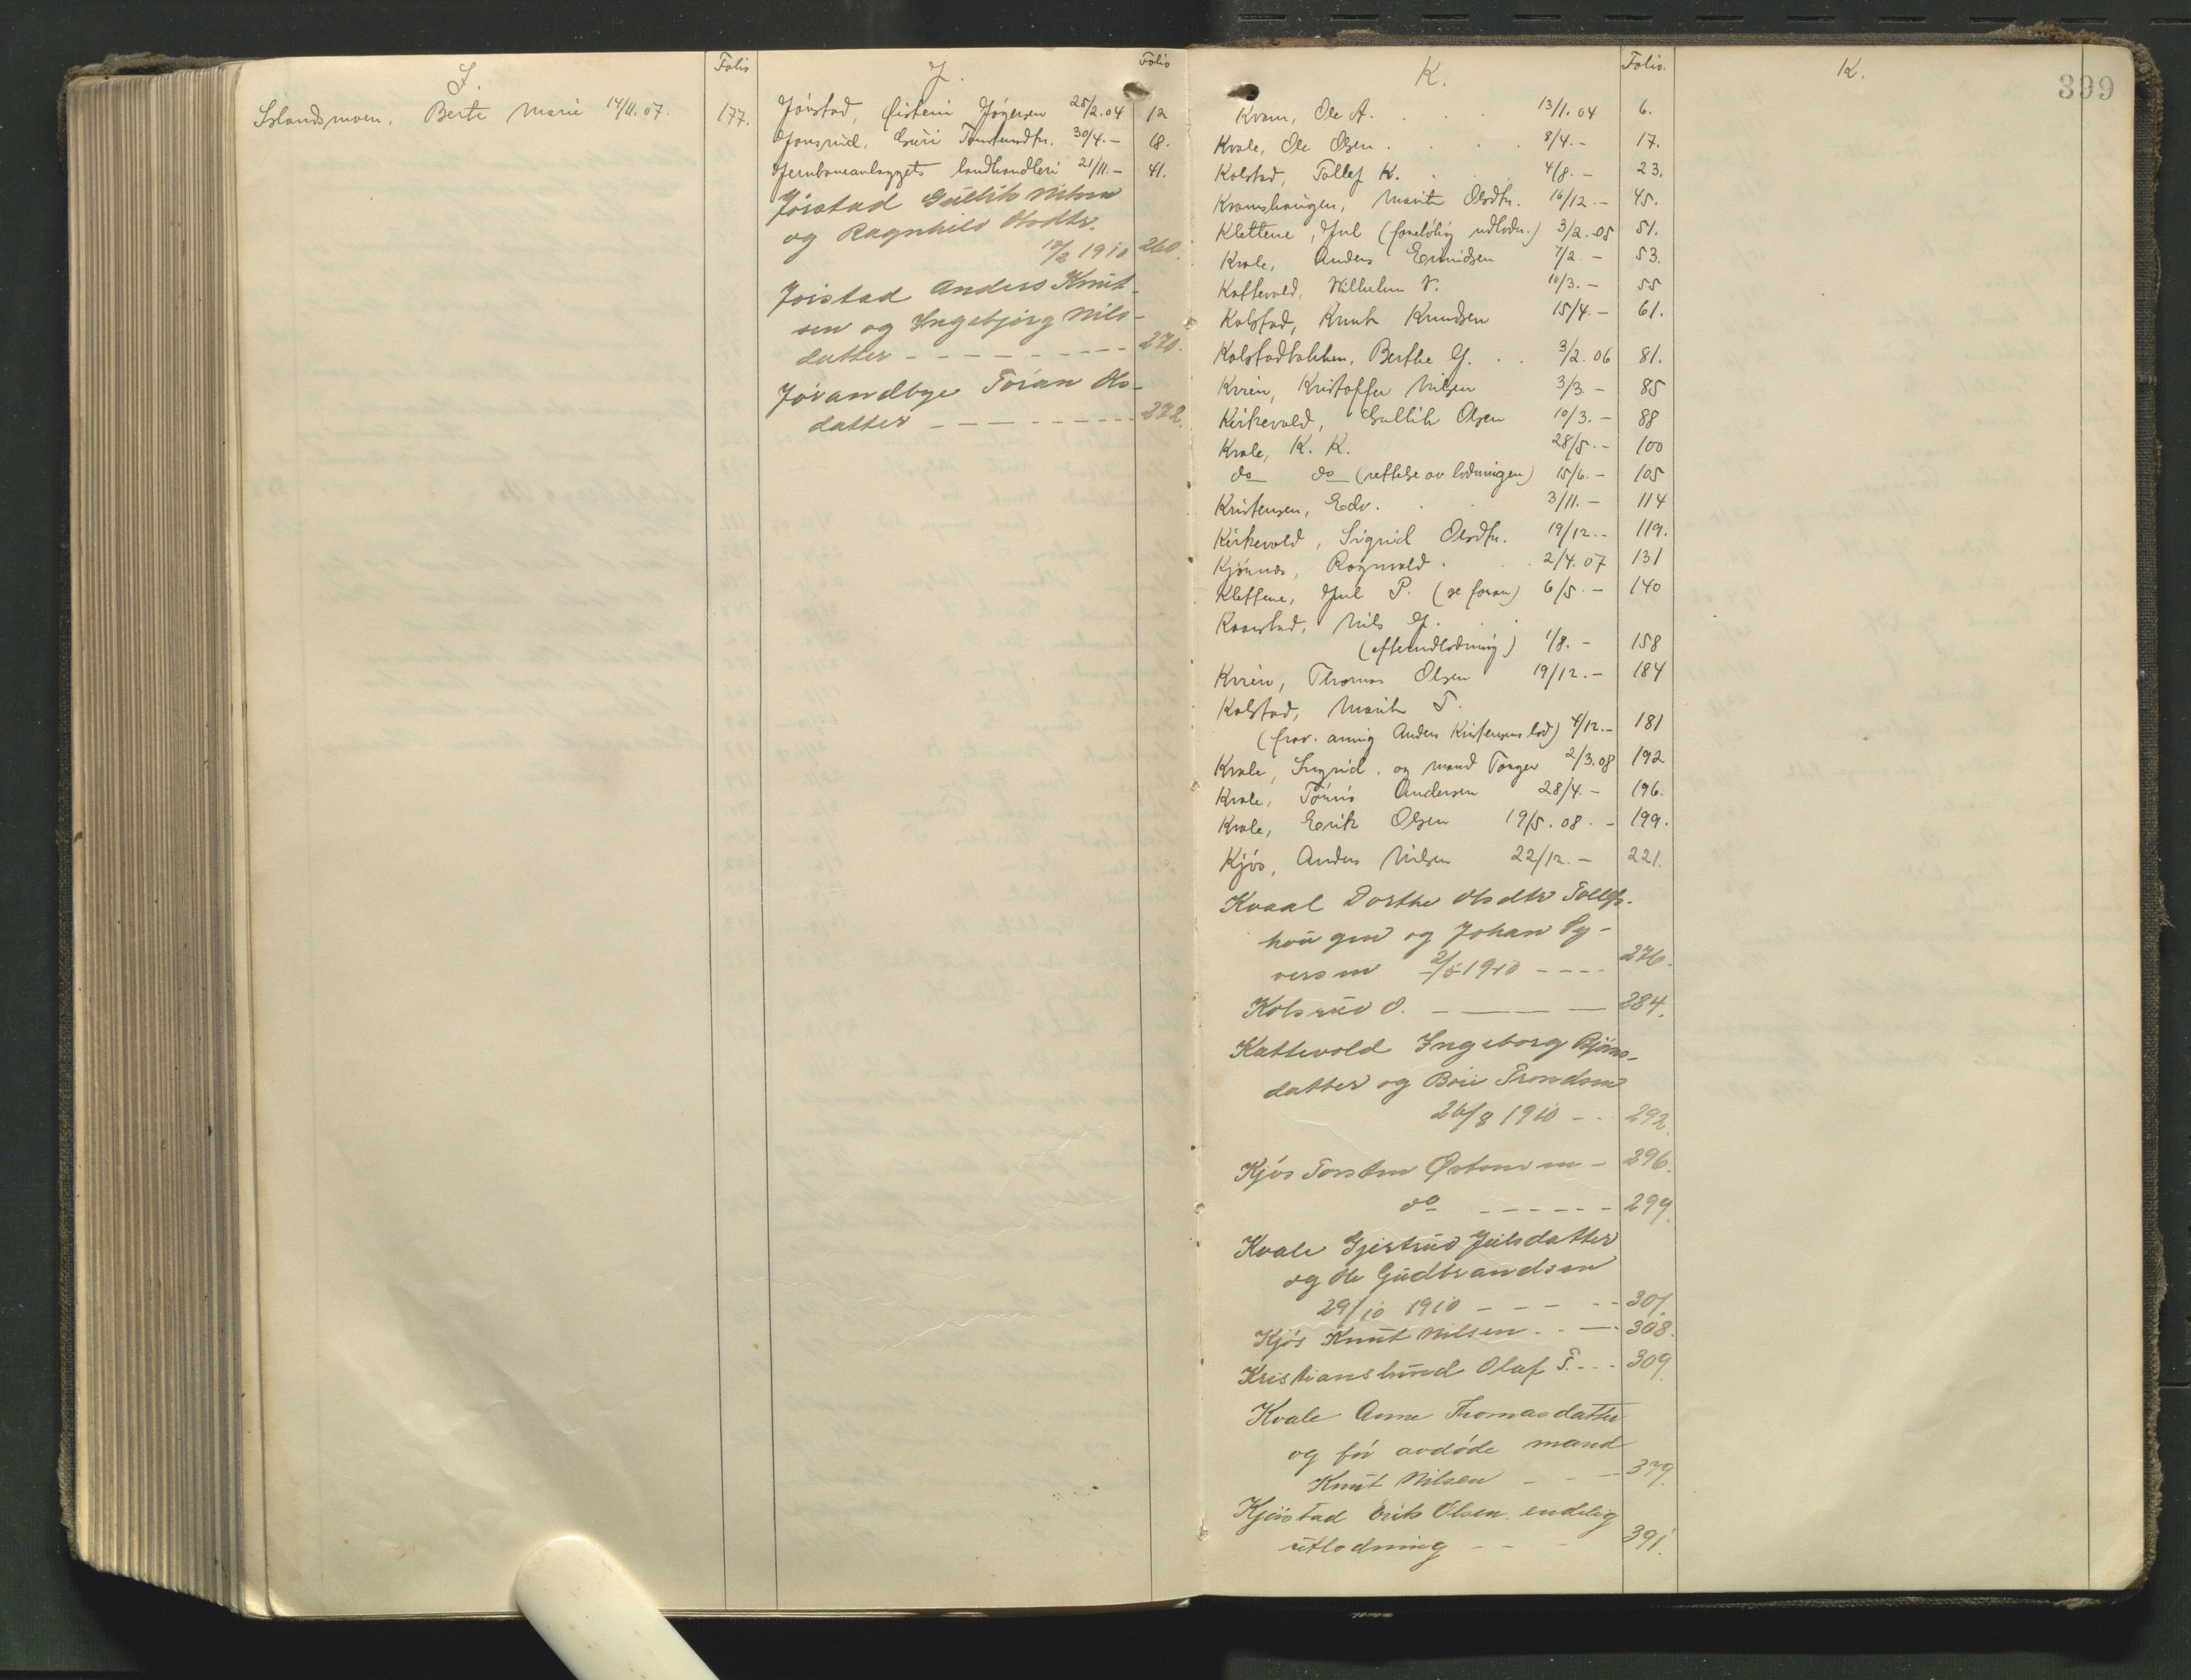 I. Folio
Islandsmoen, Berte Marie 14/11.07. 177.
J. Folio
Jørstad, Øistein Jørgensen 25/2.04 12
Jonsrud, Guri Tomtundtr. 30/4.– 18.
Jernbaneanlæggets landhandleri 21/11.– 41.
Jørstad Gullik Nilsen
og Ragnhild Olsdtr.
1910 260.
Joistad Anders Knut-
sen og Ingebjørg Nils-
datter – – – – – – – – 270.
Jørandbye Toran Ols-
datter – – – – – – – – 272.
K. Folio.
Kvam, Ole A. 13/1.04 6.
Kvale, Ole Olsen . . . 8/4.– 17.
Kolstad, Tollef K. . . 4/8.– 23.
Kramshaugen, Marit Olsdtr. 16/12.– 45.
Klettene, Jul (foreløbig udlodn.) 3/2.05 51.
Kvale, Anders Ermidsen 7/2.– 53.
Kattevold, Wilhelm V. 10/3.– 55
Kolstad, Knut Knudsen 15/4.– 61.
Kolstadbakken, Berthe G. . . 3/2.06 81.
Kvien, Kristoffer Nilsen 3/3.– 85
Kirkevold, Gullik Olsen 10/3.– 88
Kvale, K. K. 28/5.– 100
do do (rettelse av lodningen) 15/6.– 105
Kristensen, Edv. . . 3/11.– 114
Kirkevold, Sigrid Olsdtr. 19/12.– 119.
Kjønnas, Ragnvald . . 2/4.07 131
Klettene, Jul P. (se foran) 6/5.– 140
Kaarstad, Nils G. . .
(efterudlodning) 1/8.– 158
Kvien, Thomas Olsen 19/12.– 184
Kolstad, Marit T.
(frav. arving Anders Kristensens lod) 4/12.– 181
Kvale, Ingrid. og mand Torger 2/3.08 192
Kvale, Tønnis Andersen 28/4.– 196.
Kvale, Erik Olsen 19/5.08.– 199.
Kjøs, Anders Nilsen 22/12.– 221.
Kvaal Dorthe Olsdtr Tollefs-
haugen og Johan Sy-
versen 2/5 1910 – – – – 276.
Kolsrud O. – – – – 284.
Kattevold Ingeborg Bjørns-
datter og Boie Trondsen
26/8 1910 – – 292.
Kjøs Torsten Østensen – 296.
do – – – – – – 299.
Kvale Gjertrud Juilsdatter
og Ole Gudbrandsen
29/10 1910 – – – – – 301.
Kjøs Knut Nilsen . . – . 308.
Kristianslund Olaf T. – – – 309.
Kvale Anne Thomasdatter
og før avdøde mand
Knut Nilsen – – – 379.
Kjørstad Erik Olsen endelig
utlodning – – – 391.
K.
399